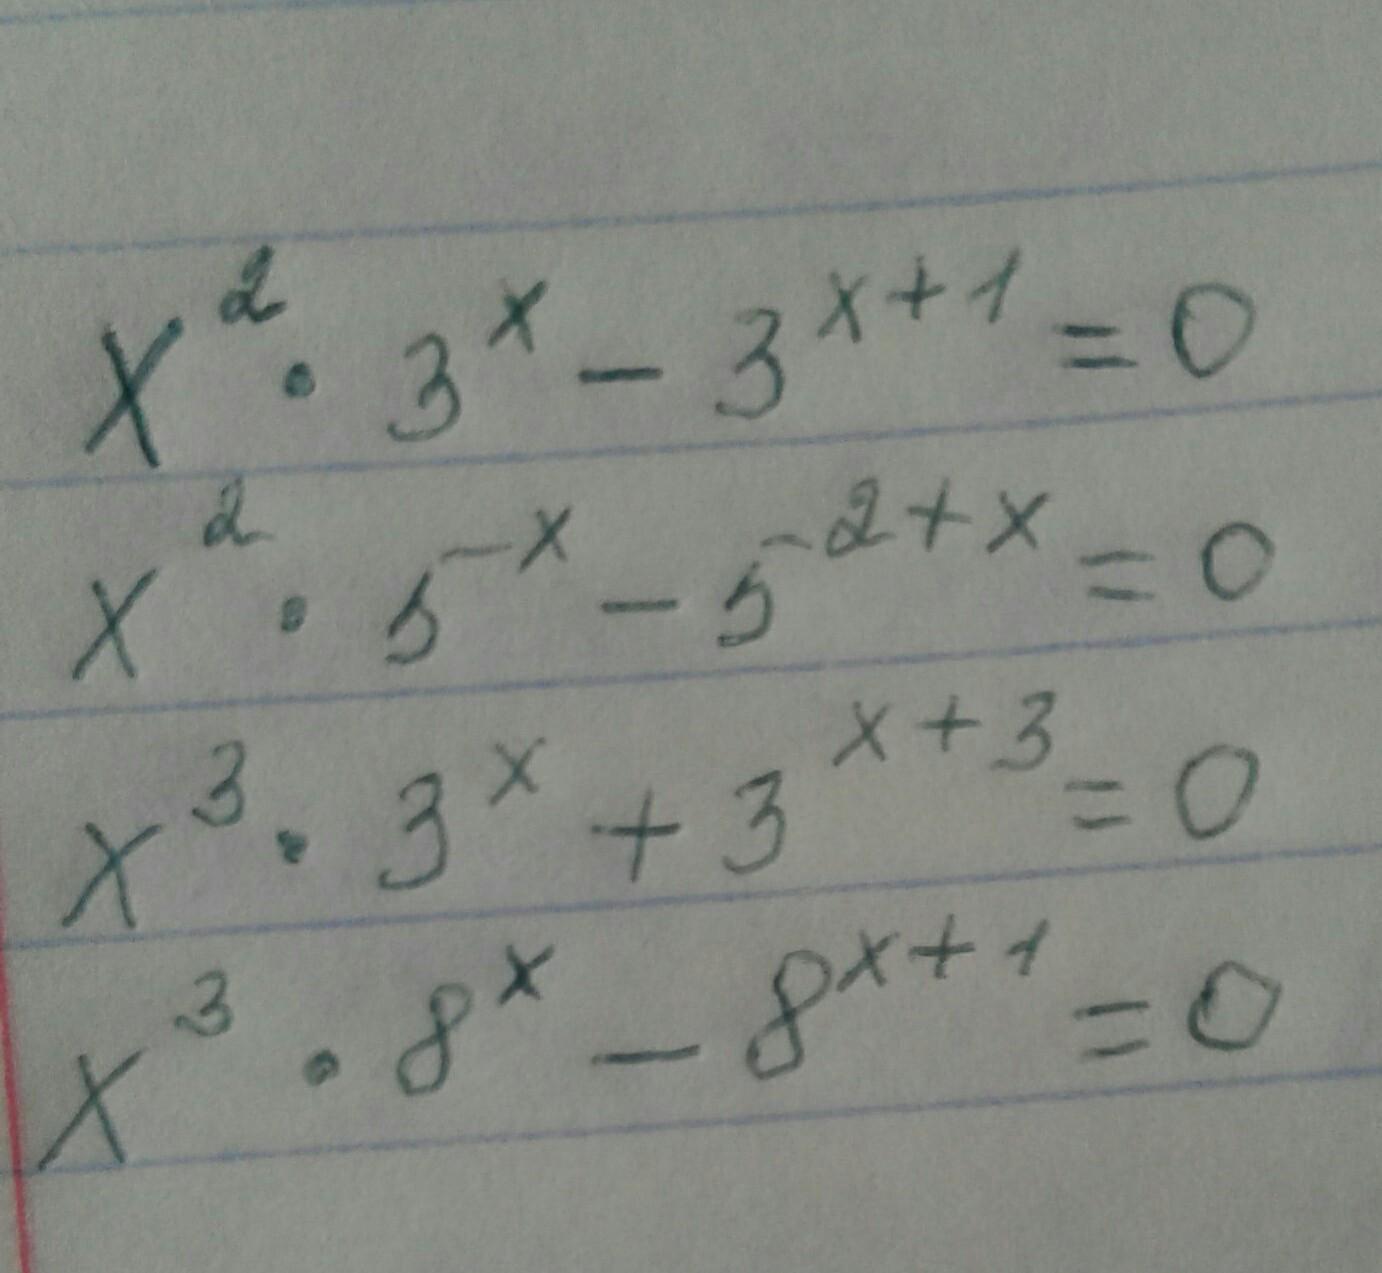 x² · 3ˣ − 3ˣ⁺¹ = 0
x² · 5⁻ˣ − 5⁻²⁺ˣ = 0
x³ · 3ˣ + 3ˣ⁺³ = 0
x³ · 8ˣ − 8ˣ⁺¹ = 0